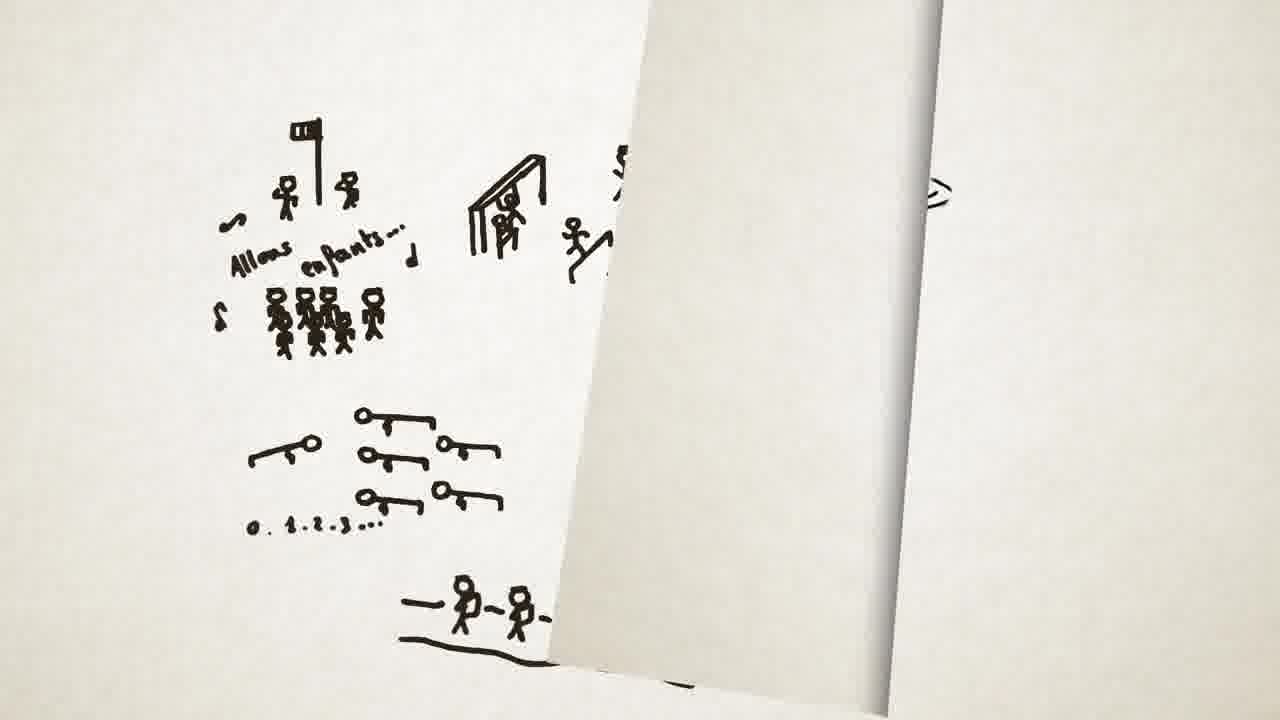 Allons
enfants...
0.1.2.3...